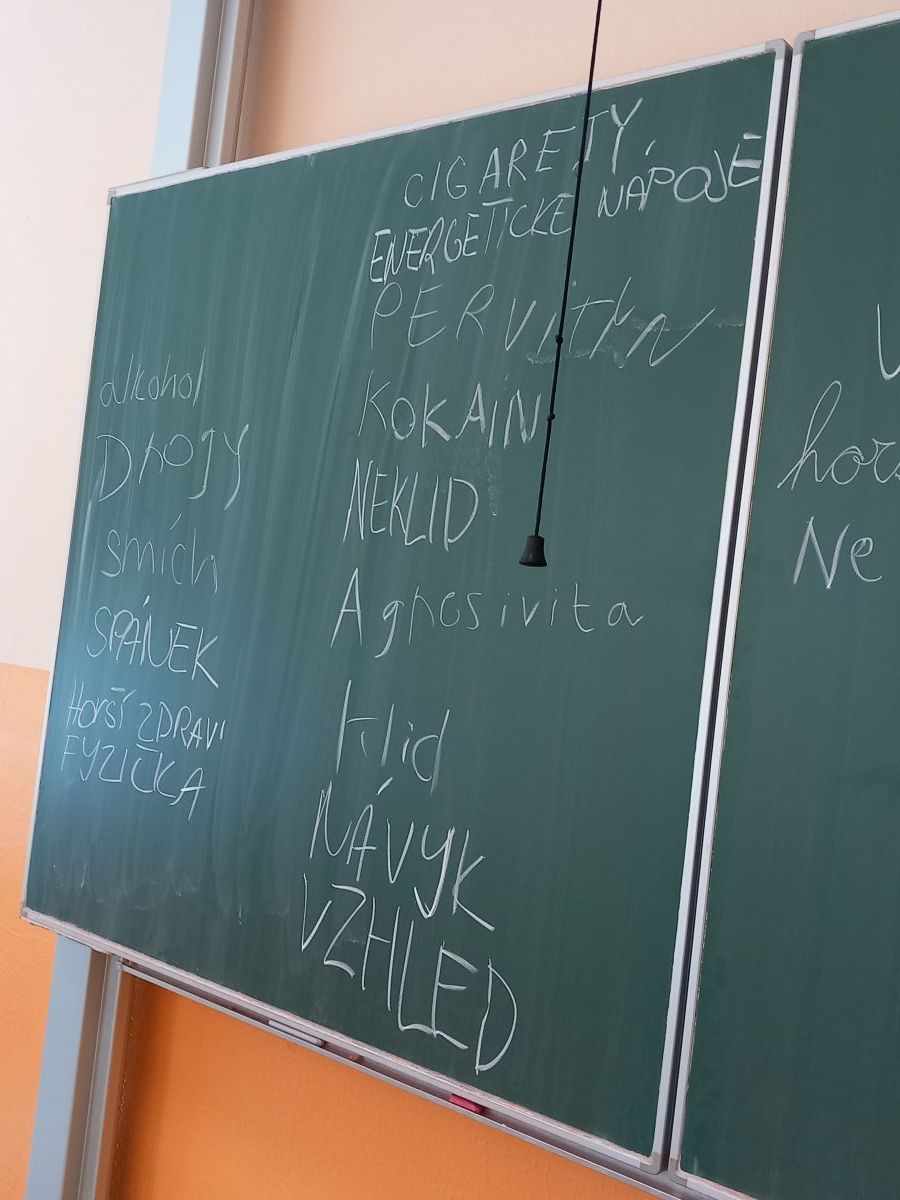 CIGARETY,
ENERGETICKÉ NÁPOJE
PERVITIN
KOKAIN
NEKLID
Agresivita
klid
NÁVYK
VZHLED
alkohol
Drogy
smích
SPÁNEK
HORŠÍ ZDRAVÍ
FYZIČKA
Ne